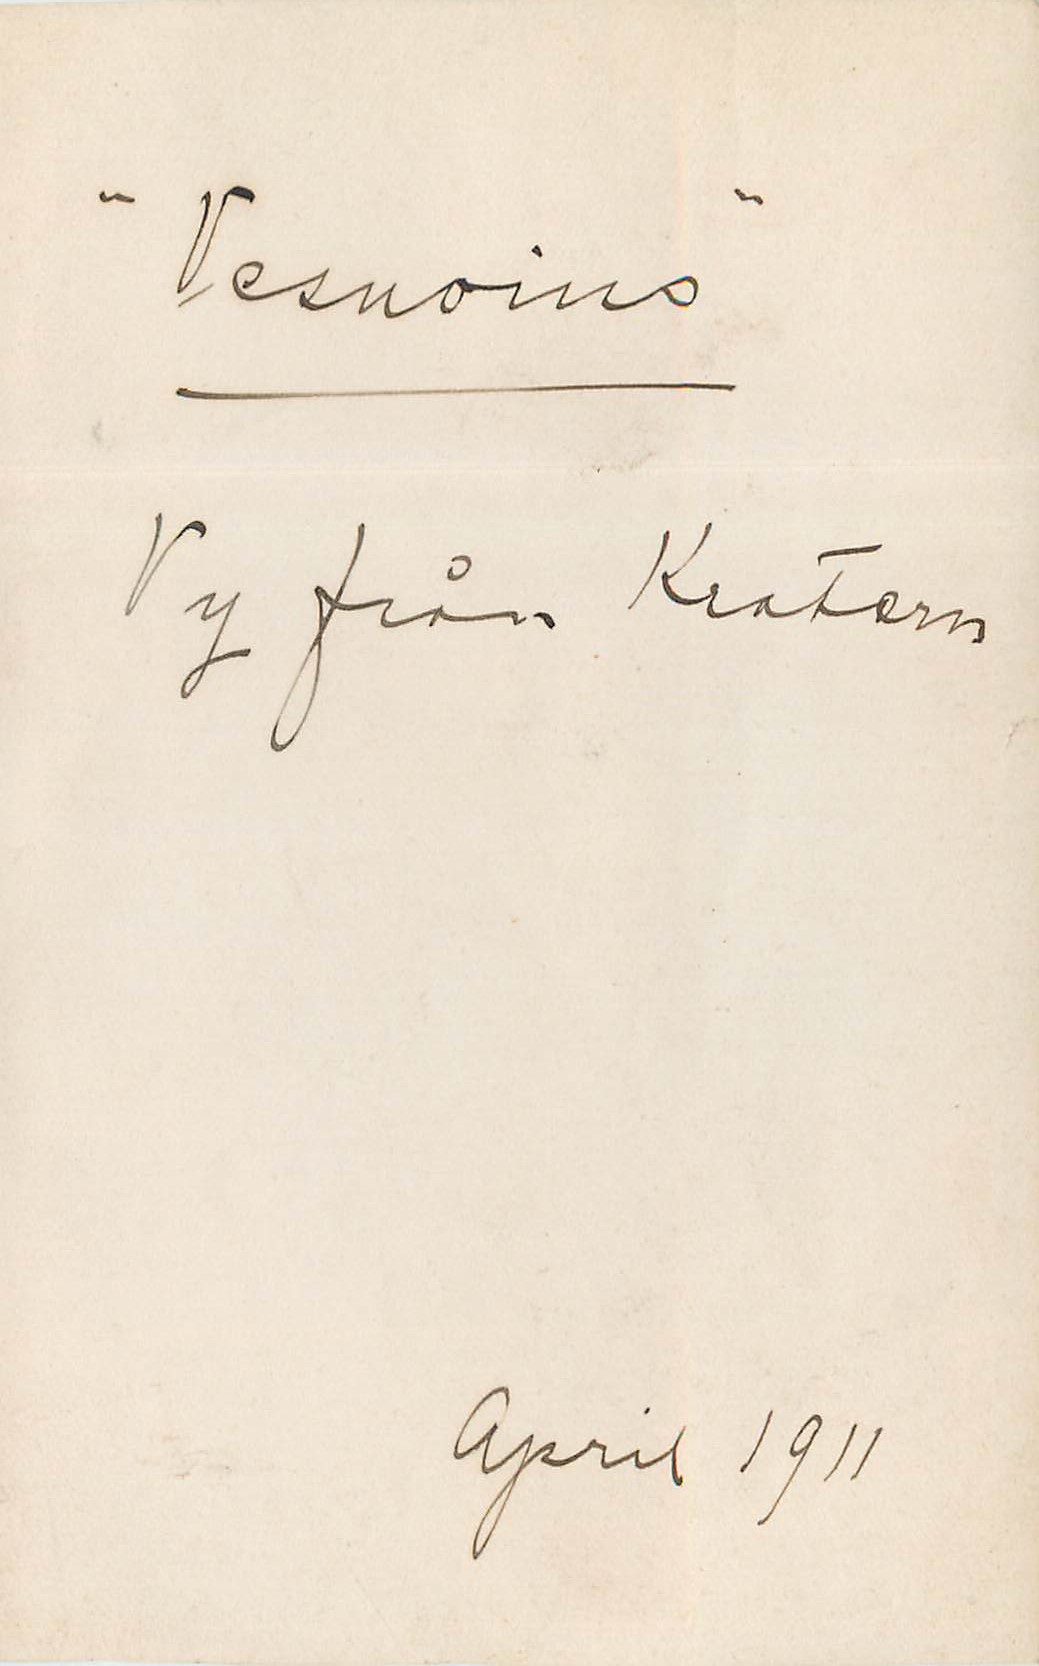 "Vesuvius"
Vy från Kratern
April 1911